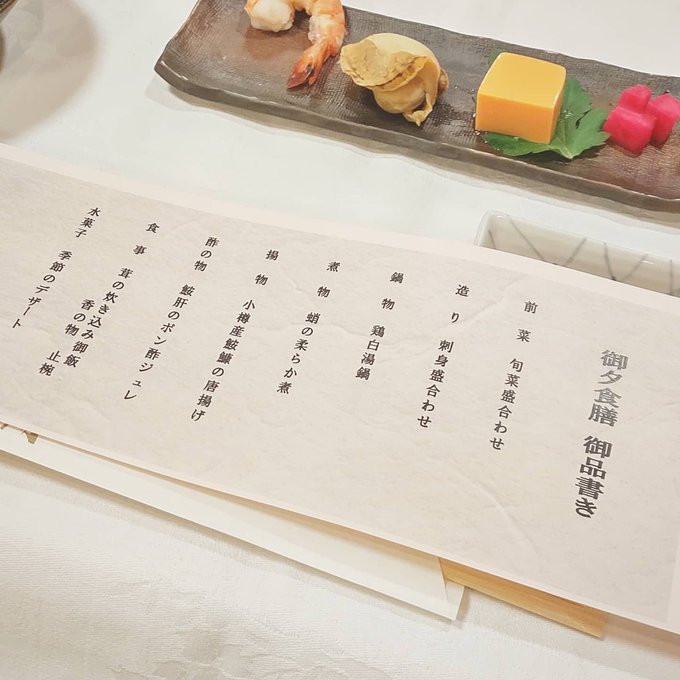 御夕食膳 御品書き
前菜 旬菜盛合わせ
造り 刺身盛合わせ
鍋物 鶏白湯鍋
煮物 蛸の柔らか煮
揚物 小樽産鮟鱇の唐揚げ
酢の物 鮟肝のポン酢ジュレ
食事 茸の炊き込み御飯
香の物 止椀
水菓子 季節のデザート